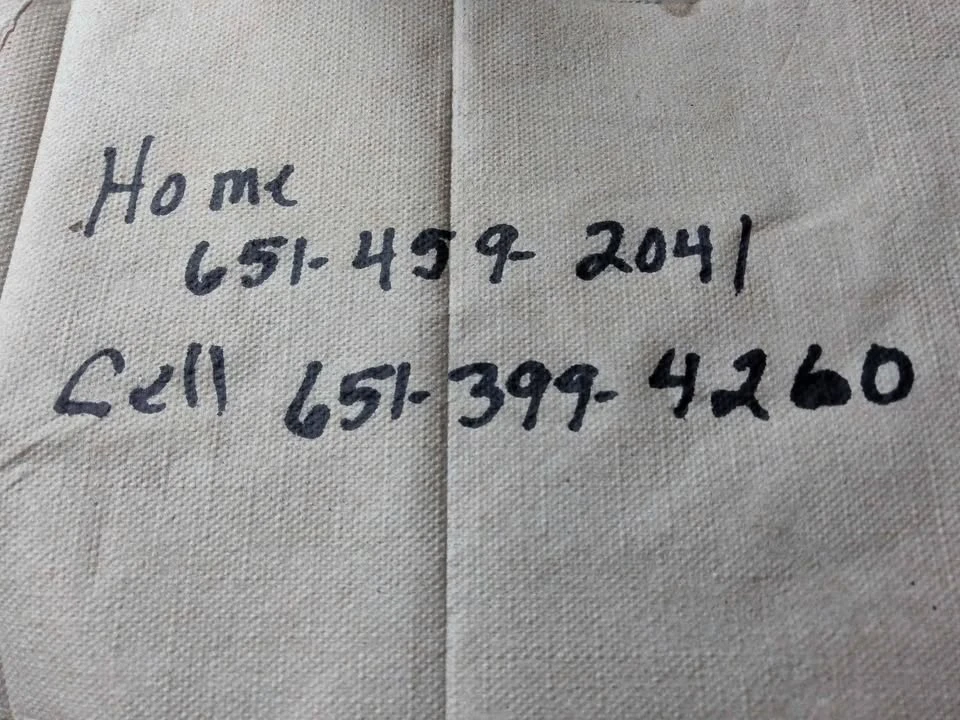 Home
651-459-2041
Cell 651-399-4260